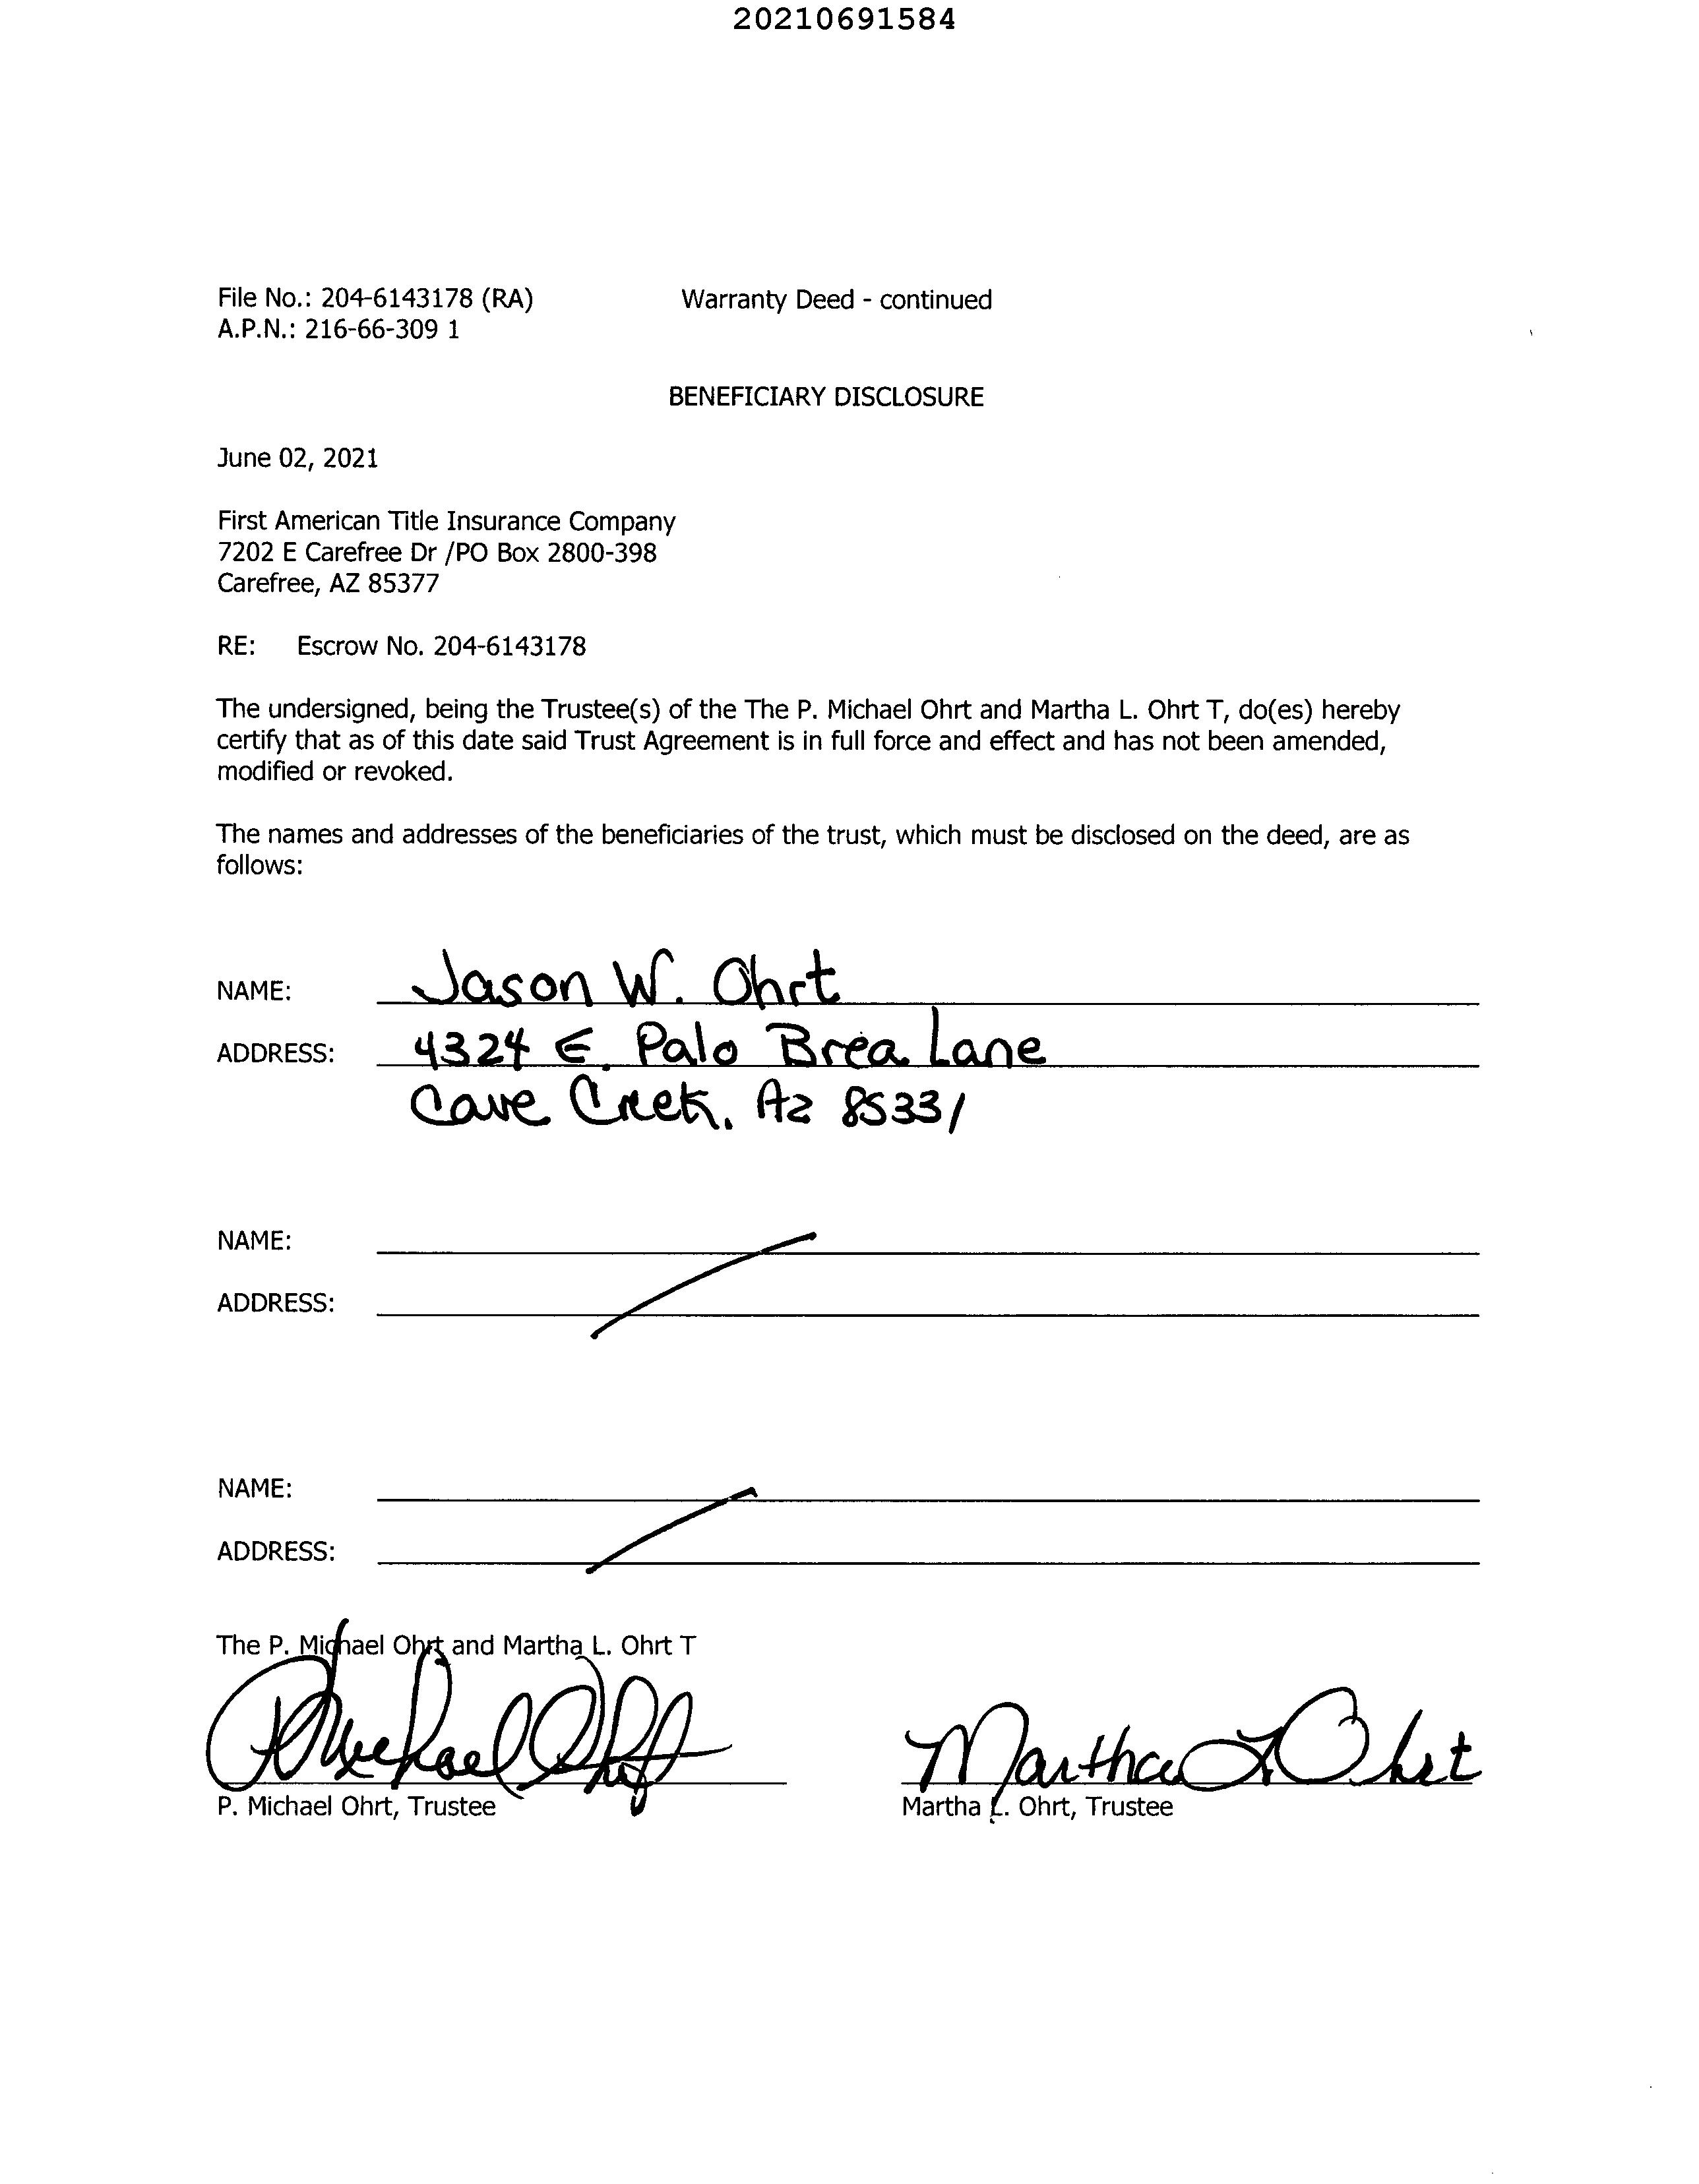 20210691584
File No.: 204-6143178 (RA) Warranty Deed - continued
A.P.N.: 216-66-309 1
BENEFICIARY DISCLOSURE
June 02, 2021
First American Title Insurance Company
7202 E Carefree Dr /PO Box 2800-398
Carefree, AZ 85377
RE: Escrow No. 204-6143178
The undersigned, being the Trustee(s) of the The P. Michael Ohrt and Martha L. Ohrt T, do(es) hereby
certify that as of this date said Trust Agreement is in full force and effect and has not been amended,
modified or revoked.
The names and addresses of the beneficiaries of the trust, which must be disclosed on the deed, are as
follows:
NAME: Jason W. Ohrt
ADDRESS: 4324 E. Palo Brea Lane
Cave Creek, Az 85331
NAME:
ADDRESS:
NAME:
ADDRESS:
The P. Michael Ohrt and Martha L. Ohrt T
P Michael Ohrt Martha L Ohrt
P. Michael Ohrt, Trustee Martha L. Ohrt, Trustee